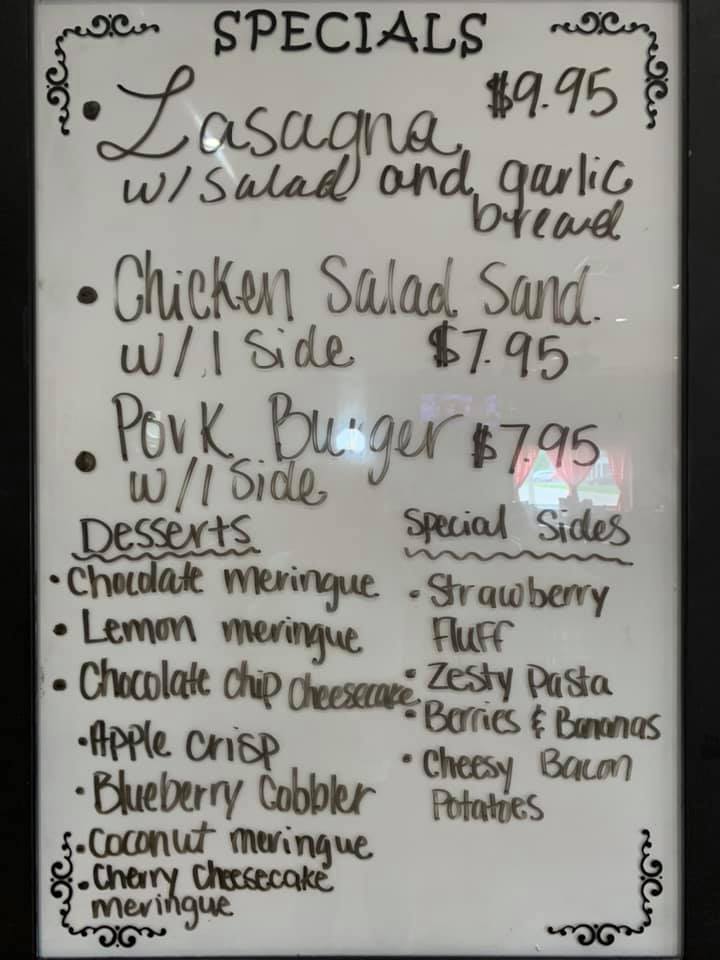 SPECIALS
• Lasagna $9.95
w/ Salad and garlic
bread
• Chicken Salad Sand.
w/ 1 Side $7.95
• Pork Burger $7.95
w/ 1 Side
Desserts
• Chocolate meringue
• Lemon meringue
• Chocolate chip cheesecake
• Apple crisp
• Blueberry Cobbler
• Coconut meringue
• Cherry cheesecake
meringue
Special Sides
• Strawberry
Fluff
• Zesty Pasta
• Berries & Bananas
• Cheesy Bacon
Potatoes